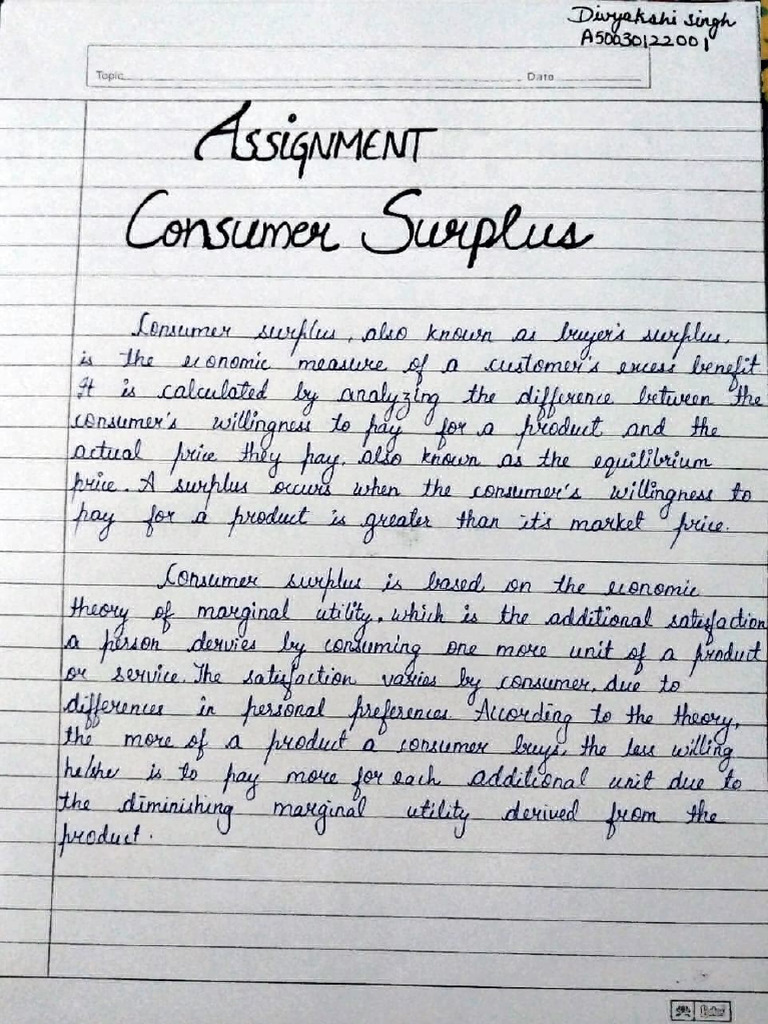 Divyakshi singh
A50030122001
Topic Date
ASSIGNMENT
Consumer Surplus
Consumer surplus, also known as buyer's surplus,
is the economic measure of a customer's excess benefit.
It is calculated by analyzing the difference between the
consumer's willingness to pay for a product and the
actual price they pay, also known as the equilibrium
price. A surplus occurs when the consumer's willingness to
pay for a product is greater than it's market price.
Consumer surplus is based on the economic
theory of marginal utility, which is the additional satisfaction
a person dervies by consuming one more unit of a product
or service. The satisfaction varies by consumer, due to
differences in personal preferences. According to the theory,
the more of a product a consumer buys, the less willing
he/she is to pay more for each additional unit due to
the diminishing marginal utility derived from the
product.